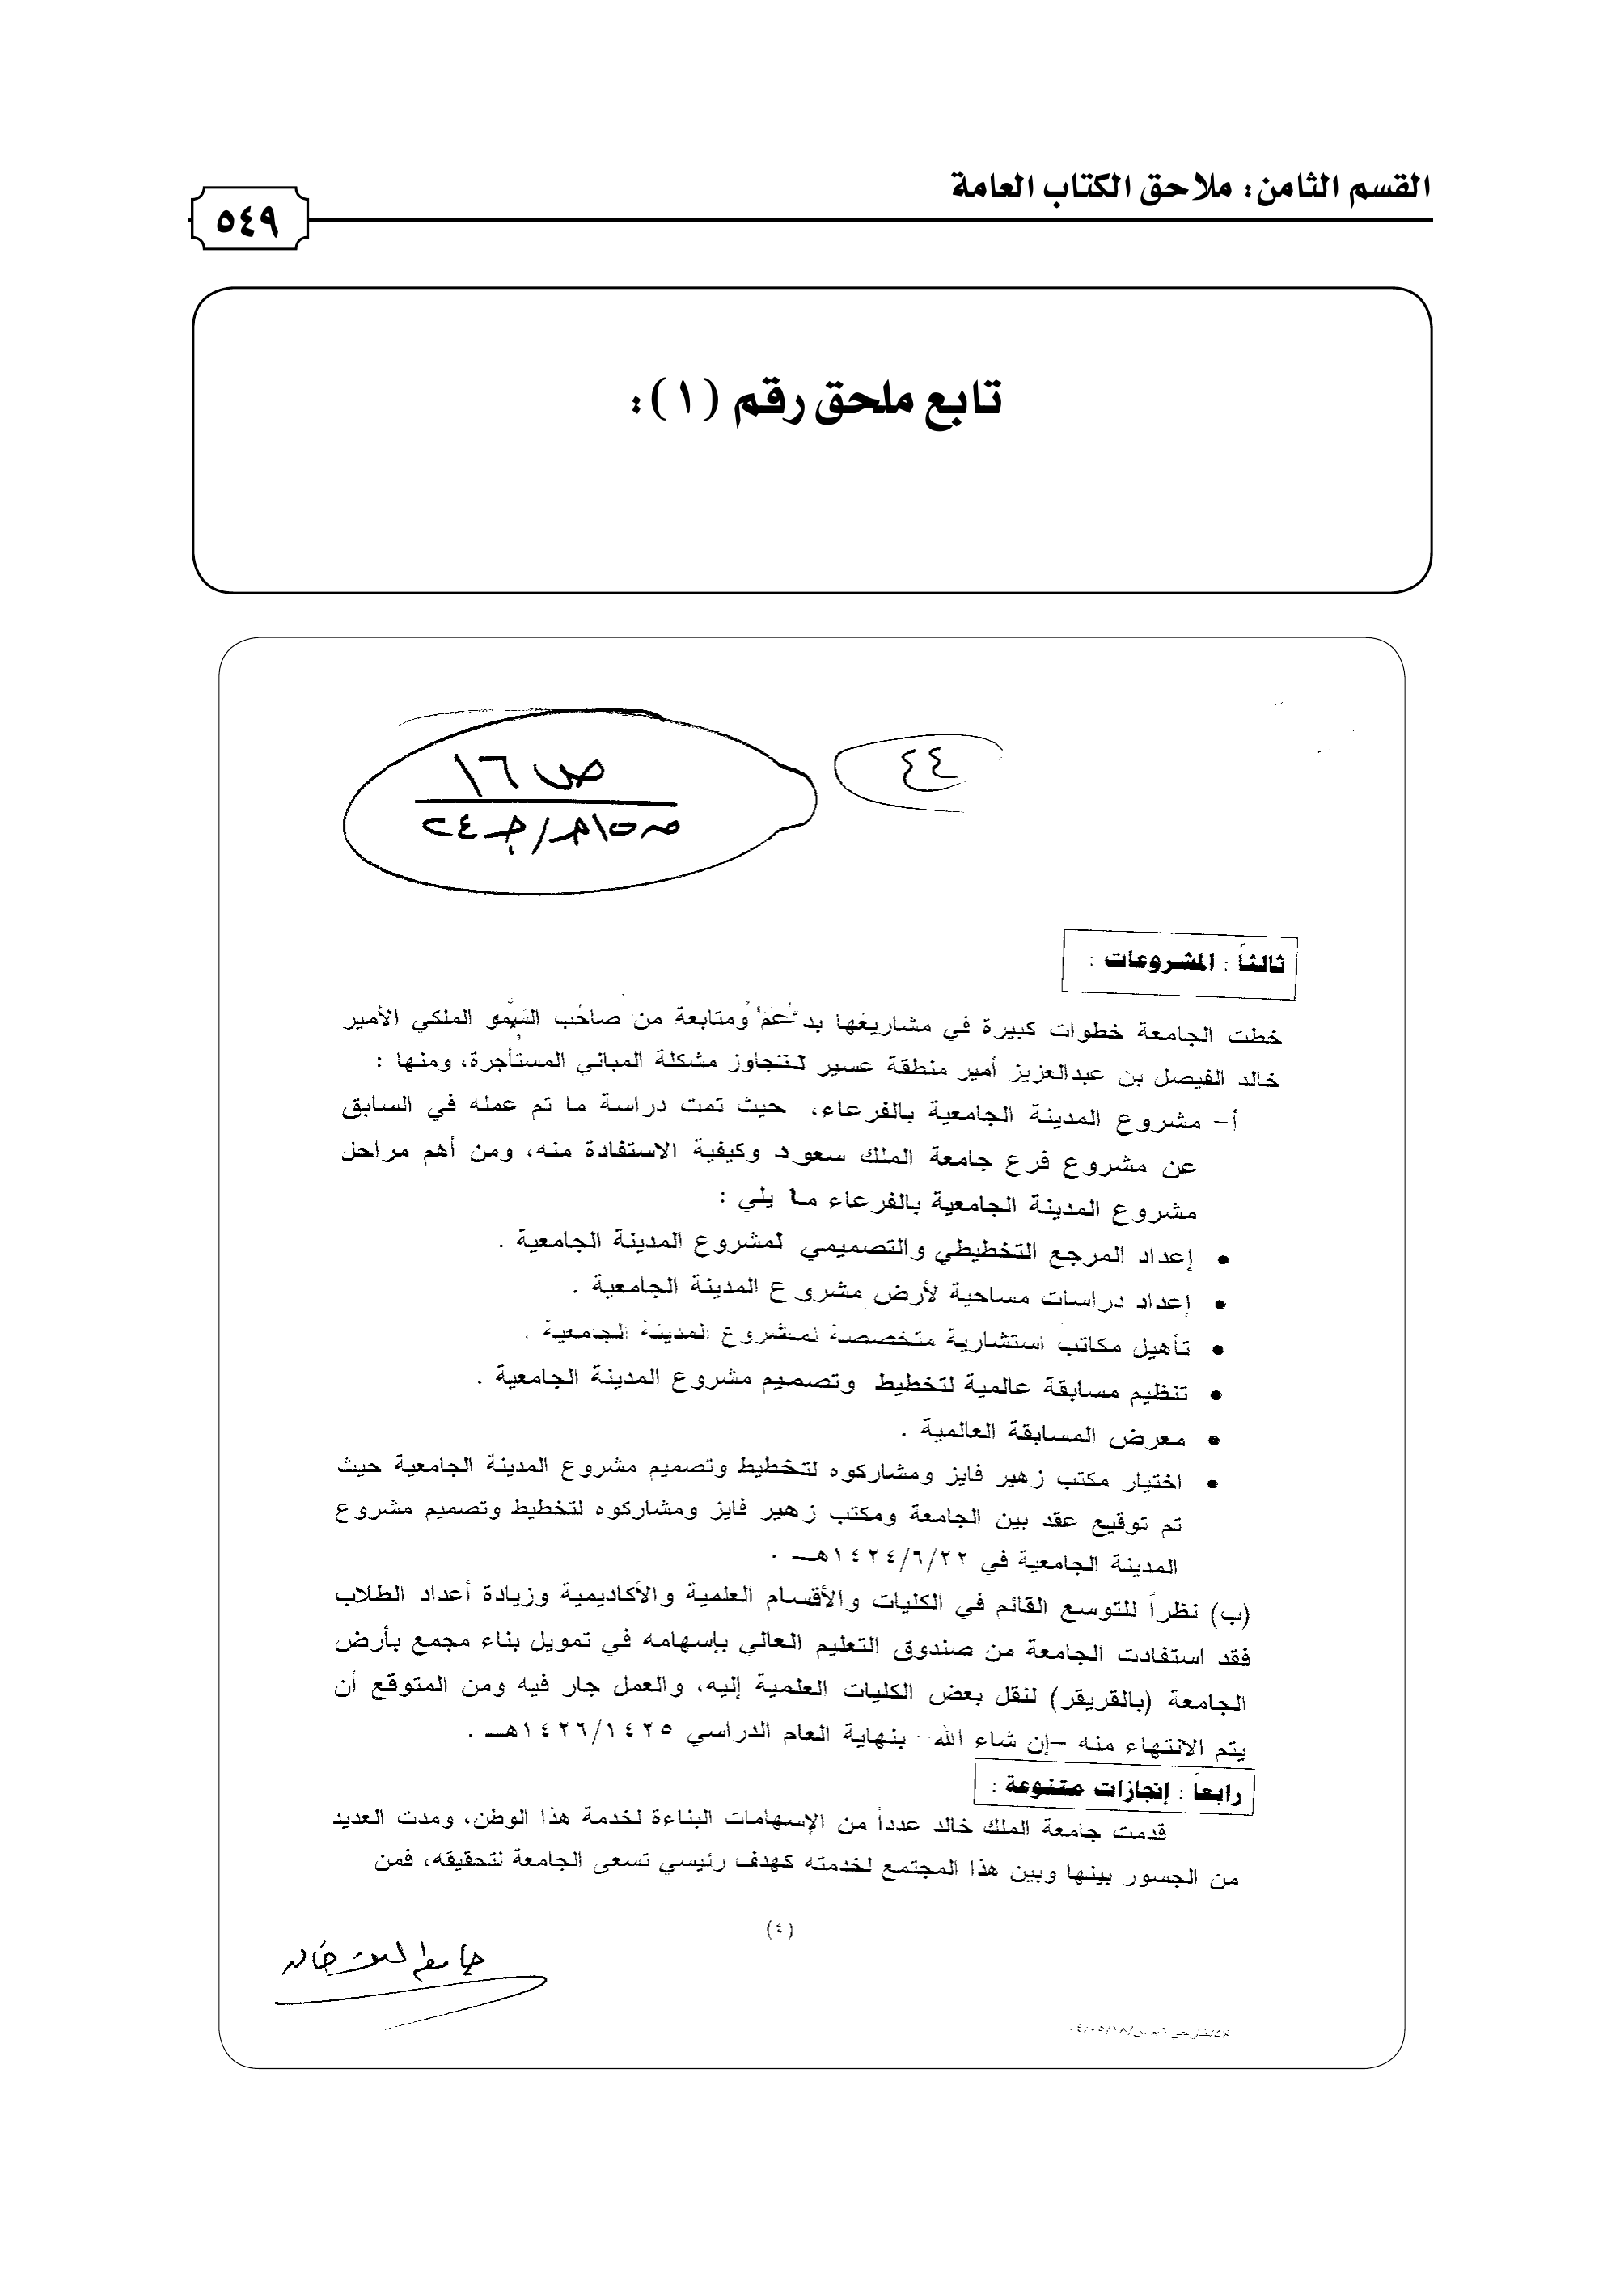 القسم الثامن: ملاحق الكتاب العامة
٥٤٩
تابع ملحق رقم (١):
٤٤
ص ١٦
ج٢٤
ثالثاً : المشروعات :
خطت الجامعة خطوات كبيرة في مشاريعها بدعم ومتابعة من صاحب السمو الملكي الأمير
خالد الفيصل بن عبدالعزيز أمير منطقة عسير لتجاوز مشكلة المباني المستأجرة، ومنها :
أ- مشروع المدينة الجامعية بالفرعاء، حيث تمت دراسة ما تم عمله في السابق
عن مشروع فرع جامعة الملك سعود وكيفية الاستفادة منه، ومن أهم مراحل
مشروع المدينة الجامعية بالفرعاء ما يلي :
• إعداد المرجع التخطيطي والتصميمي لمشروع المدينة الجامعية .
• إعداد دراسات مساحية لأرض مشروع المدينة الجامعية .
• تأهيل مكاتب استشارية متخصصة لمشروع المدينة الجامعية .
• تنظيم مسابقة عالمية لتخطيط وتصميم مشروع المدينة الجامعية .
• معرض المسابقة العالمية .
• اختيار مكتب زهير فايز ومشاركوه لتخطيط وتصميم مشروع المدينة الجامعية حيث
تم توقيع عقد بين الجامعة ومكتب زهير فايز ومشاركوه لتخطيط وتصميم مشروع
المدينة الجامعية في ١٤٢٤/٦/٢٢هـ .
(ب) نظراً للتوسع القائم في الكليات والأقسام العلمية والأكاديمية وزيادة أعداد الطلاب
فقد استفادت الجامعة من صندوق التعليم العالي بإسهامه في تمويل بناء مجمع بأرض
الجامعة (بالقريقر) لنقل بعض الكليات العلمية إليه، والعمل جار فيه ومن المتوقع أن
يتم الانتهاء منه -إن شاء الله- بنهاية العام الدراسي ١٤٢٦/١٤٢٥هـ .
رابعاً : إنجازات متنوعة :
قدمت جامعة الملك خالد عدداً من الإسهامات البناءة لخدمة هذا الوطن، ومدت العديد
من الجسور بينها وبين هذا المجتمع لخدمته كهدف رئيسي تسعى الجامعة لتحقيقه، فمن
(٤)
جامعة الملك خالد